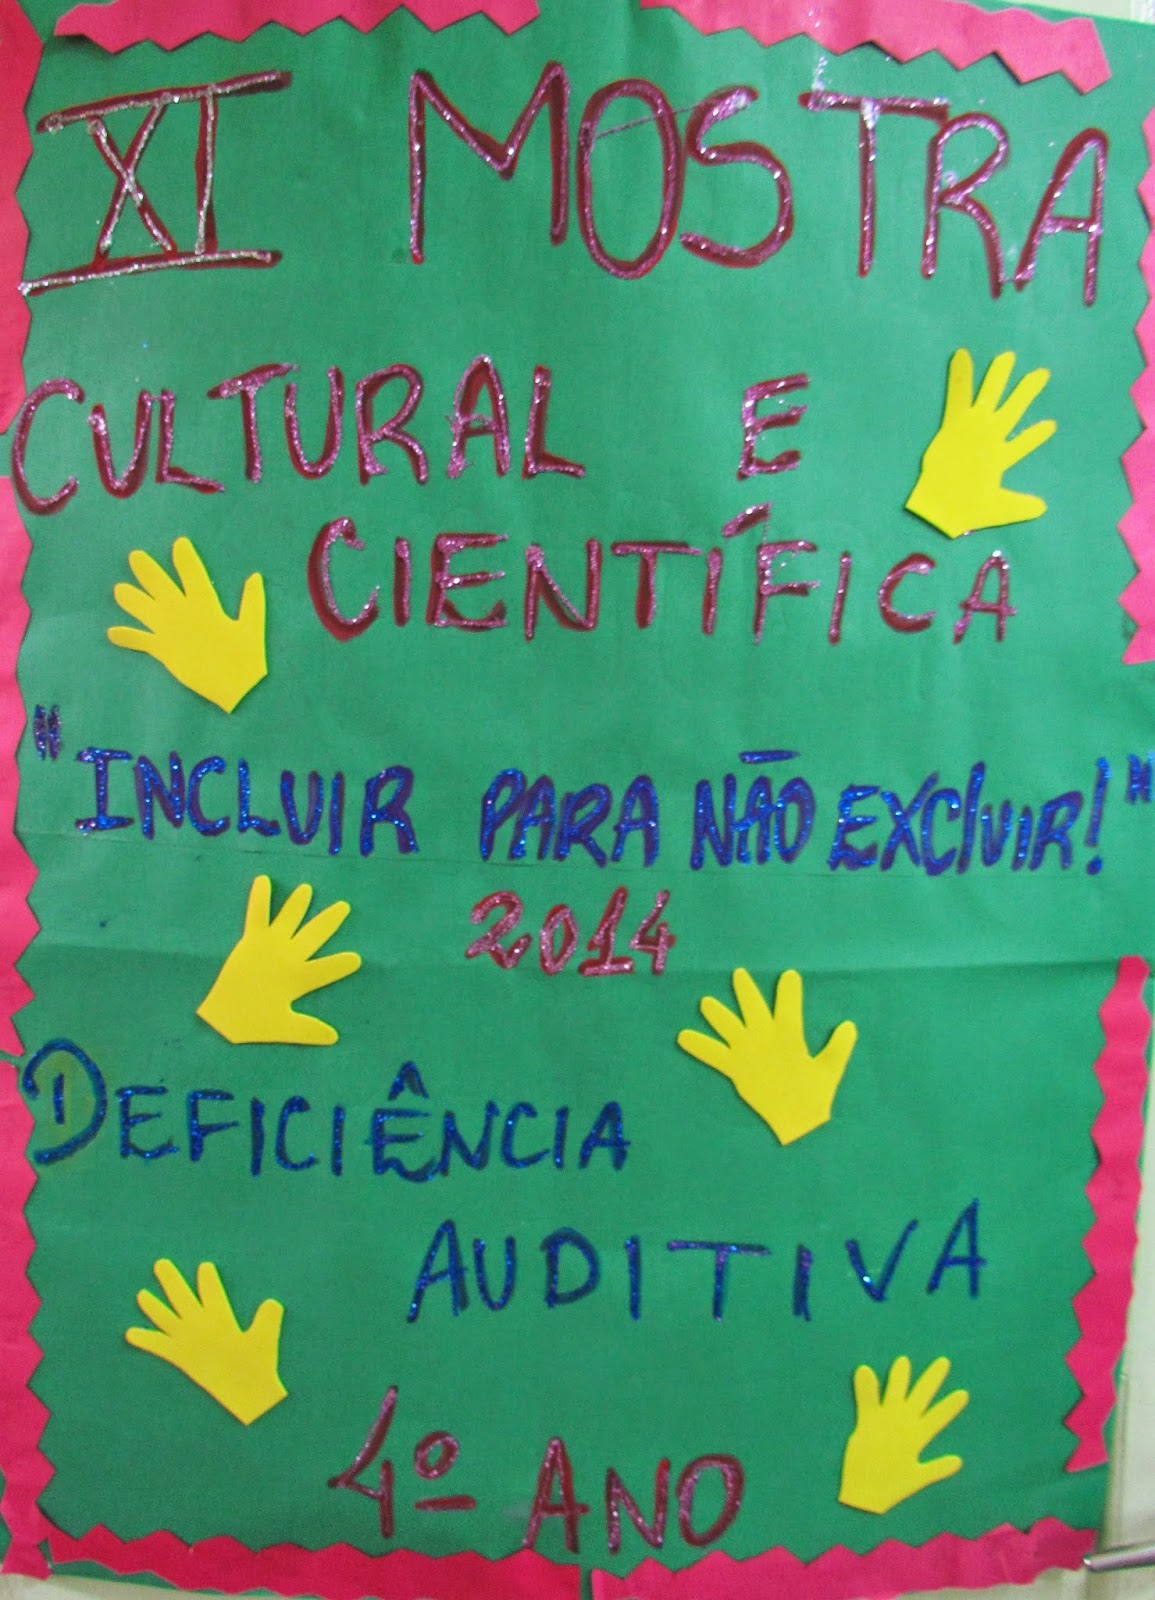 XI MOSTRA
CULTURAL E
CIENTÍFICA
"INCLUIR PARA NÃO EXCLUIR!"
2014
DEFICIÊNCIA
AUDITIVA
4º ANO